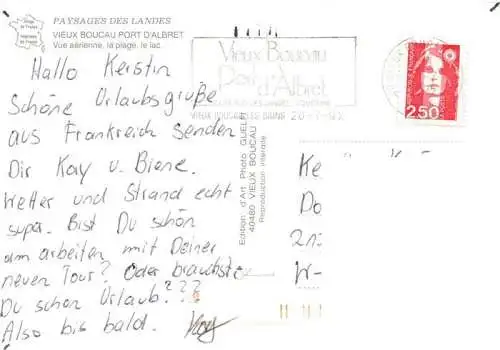 PAYSAGES DES LANDES
VIEUX BOUCAU PORT D'ALBRET
Vue aérienne, la plage, le lac.
Hallo Kerstin
Schöne Urlaubsgrüße
aus Frankreich senden
Dir Kay u. Biene.
Wetter und Strand echt
super. Bist Du schön
am arbeiten mit Deiner
neuen Tour? Oder brauchst
Du schon Urlaub???
Also bis bald. Kay
Edition d'Art Photo GUEL
40480 VIEUX BOUCAU
Reproduction interdite
Vieux Boucau
Port d'Albret
VIEUX BOUCAU LES BAINS 20-7-92
2,50
Ke
Do
W-